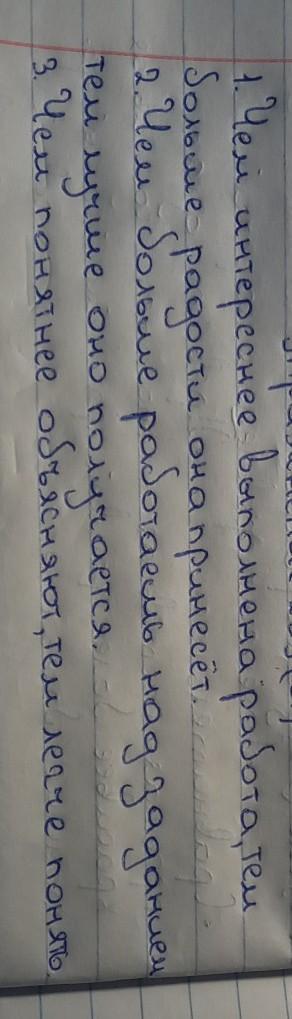 1. Чем интереснее выполнена работа, тем
больше радости она принесёт.
2. Чем больше работаешь над заданием
тем лучше оно получается.
3. Чем понятнее объясняют, тем легче понять.